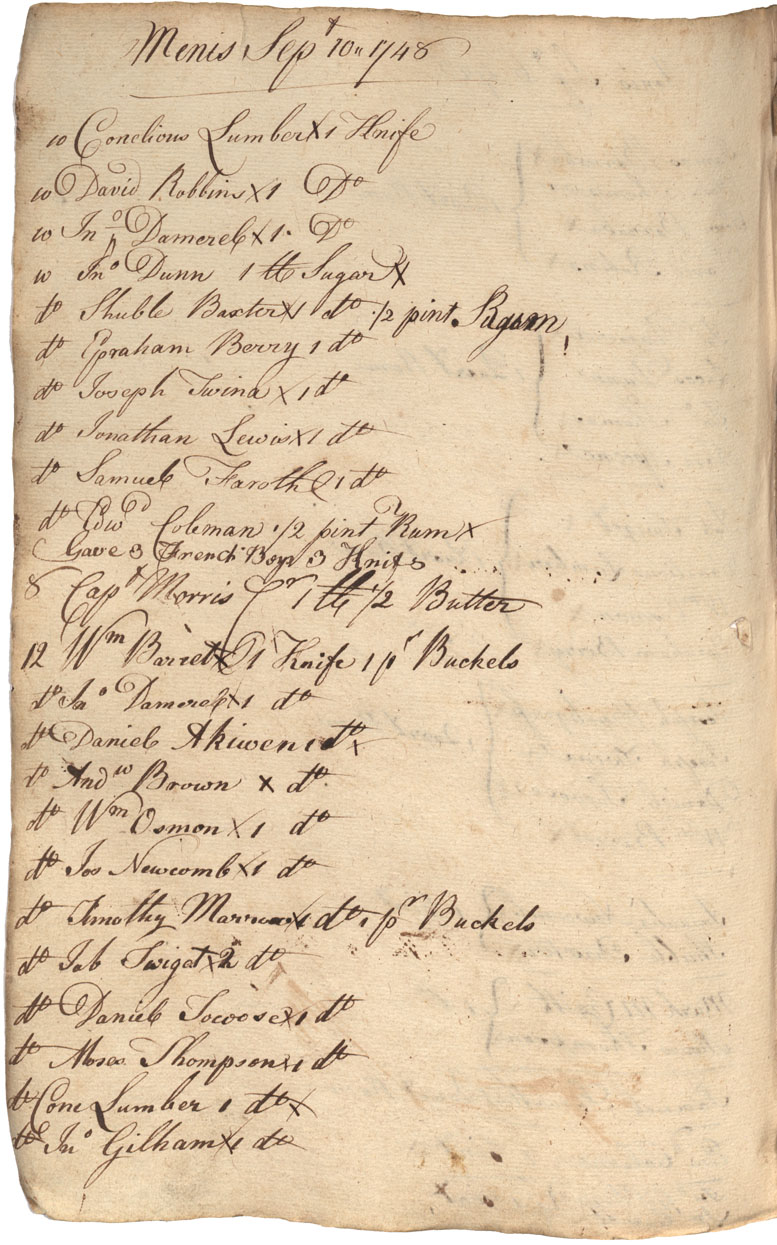 Menis Sept 10 1748
10 Conelious Lumber x 1 Knife
10 David Robbins x 1 Do
10 Jno Damereb x 1 Do
10 Jno Dunn 1 lb Sugar x
do Shuble Baxter x 1 do 1/2 pint
do Epraham Berry 1 do
do Joseph Twina x 1 do
do Jonathan Lewis x 1 do
do Samueb 1 do
do Edwd Coleman 1/2 pint Rum x
Gave 3 French Boys 3 Knifs
8 Capt Morris 1 lb 1/2 Butter
12 Wm Barret x 1 Knife 1 pr Buckels
do Jao Damereb x 1 do
do Danieb Akiwen 1 do x
do Andw Brown x do
do Wm Osmon x 1 do
do Jos Newcomb x 1 do
do Timothy 1 do 1 pr Buckels
do Jab Twiget x 2 do
do Danieb Socoose x 1 do
do Moses Thompson x 1 do
do Cone Lumber 1 do x
do Jno Gilham x 1 do